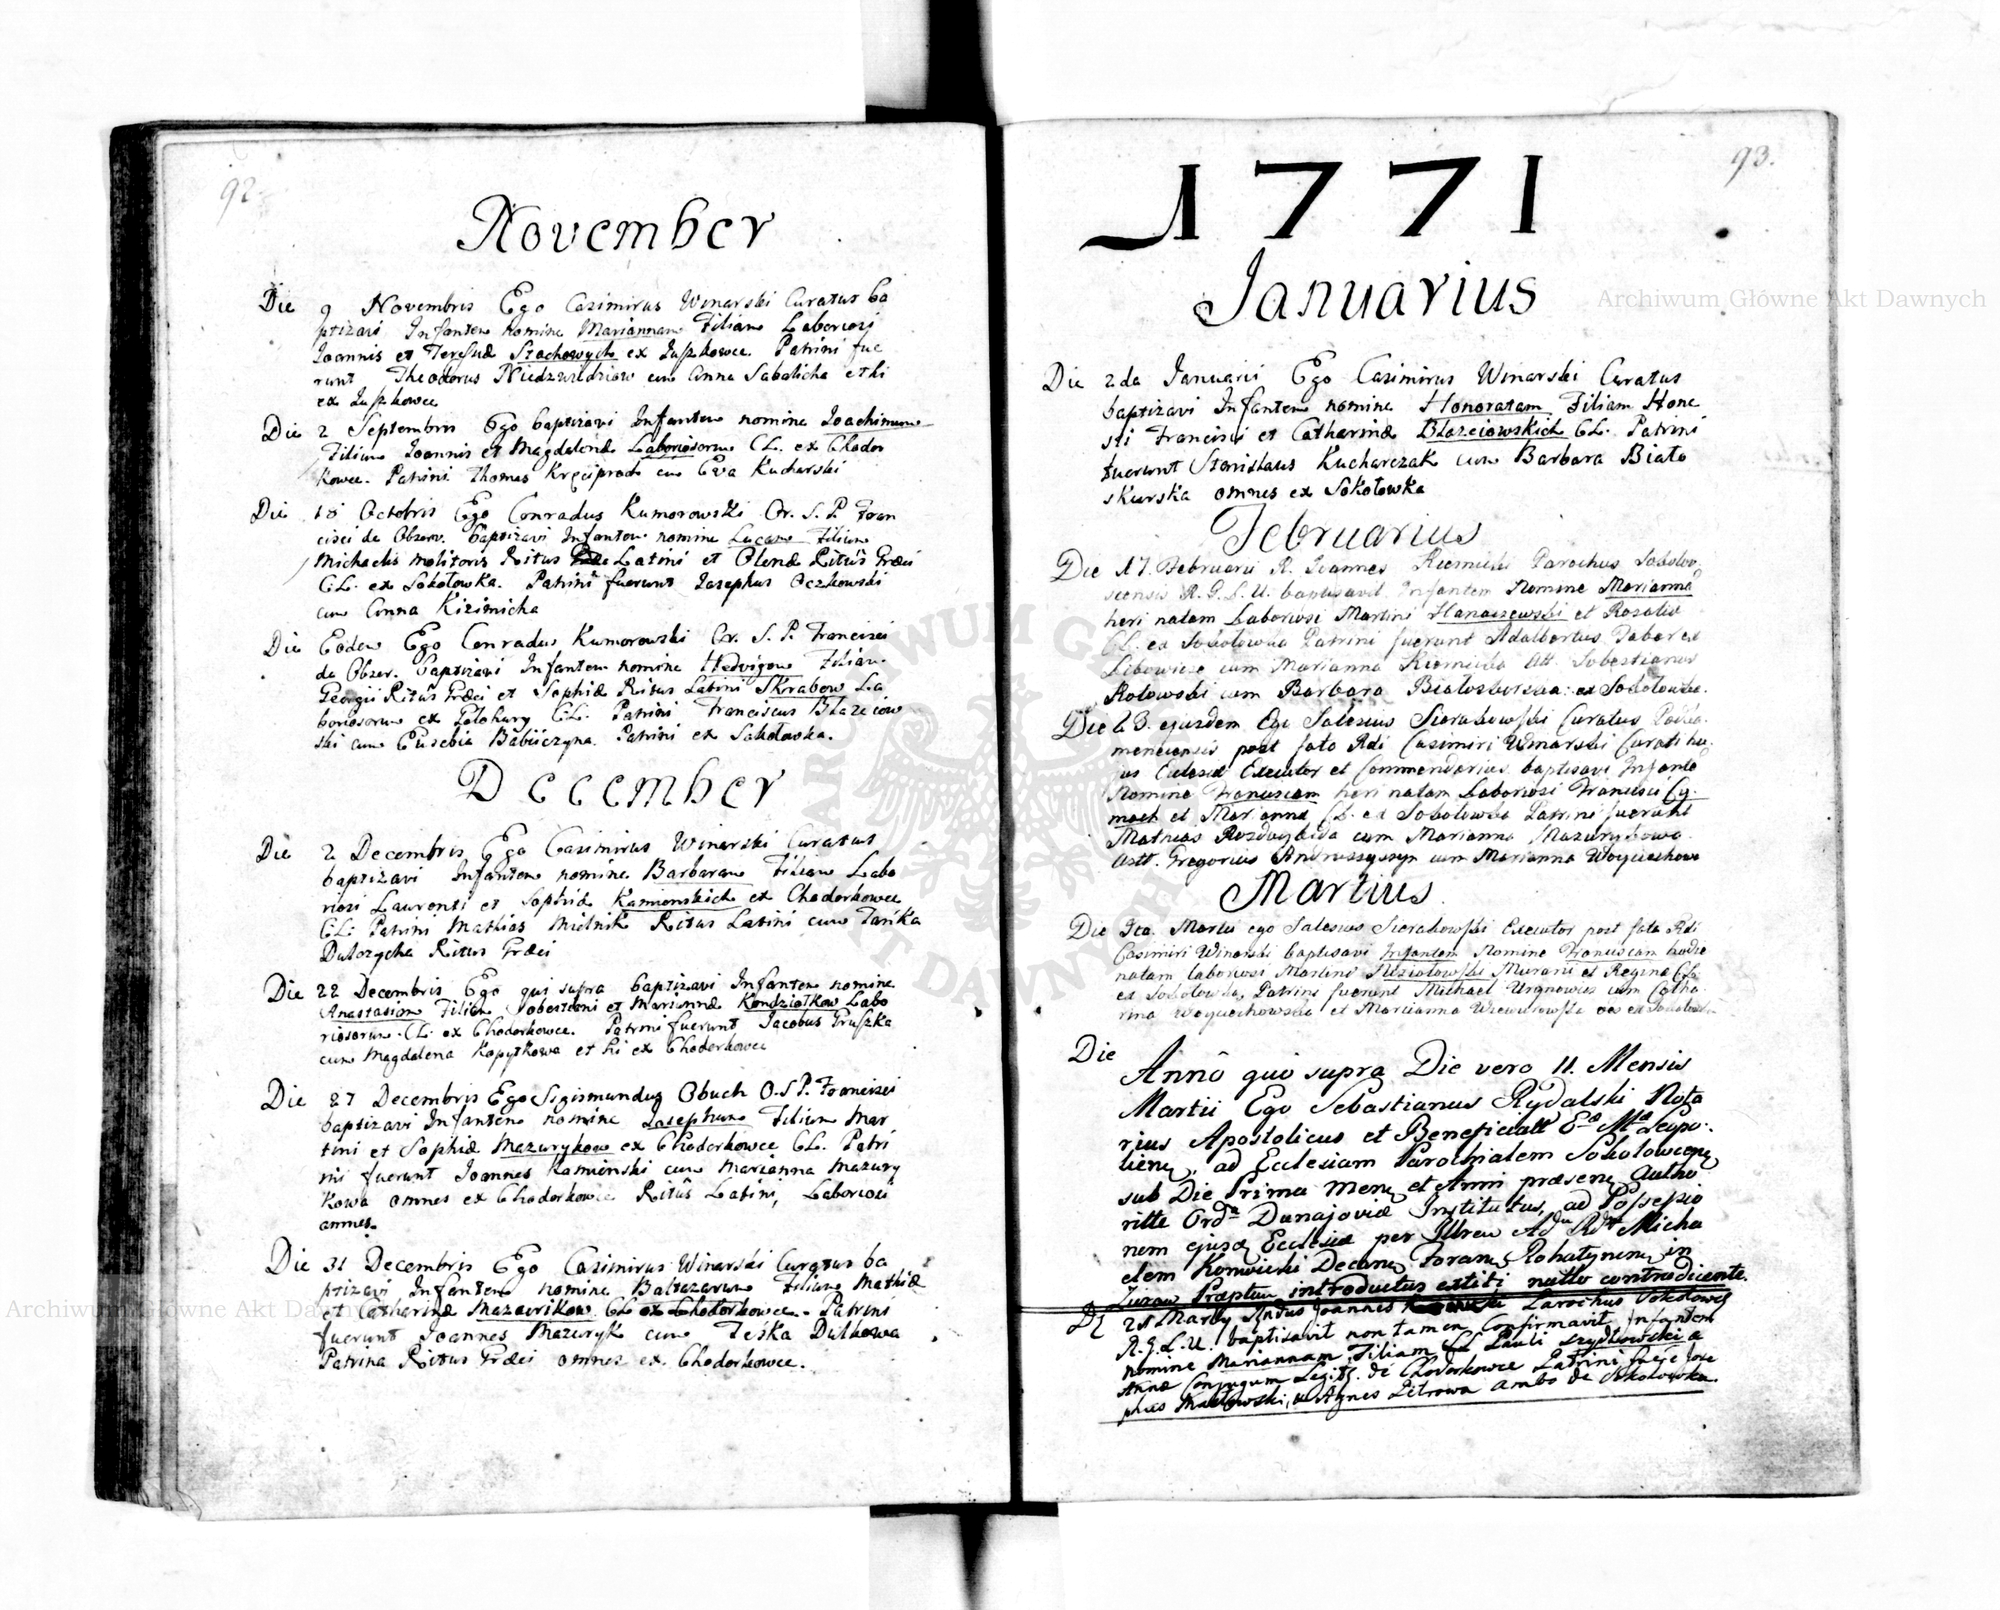 92
November
Die 9 Novembris Ego Casimirus Winarski Curatus ba
ptizavi Infantem nomine Mariannam Filiam Laboriosi
Joannis et Teresiæ Stachowych ex Juszkowce. Patrini fue
runt Theodorus Niedzwidziow cum Anna Sabalicha et hi
ex Juszkowce
Die 2 Septembris Ego baptizavi Infantem nomine Joachimum
Filium Joannis et Magdalenæ Laboriosorum CL. ex Chodor
kowce. Patrini Thomas cum Eva Kucharski
Die 18 Octobris Ego Conradus Kumorowski Or. S. P. Fran
cisci de Observ. baptizavi Infantem nomine Lucam Filium
Michaelis molitoris Ritus Latini et Olenæ Ritus Græci
CL. ex Sokołowka. Patrini fuerunt Josephus Oczkowski
cum Anna Kizimicha
Die Eodem Ego Conradus Kumorowski Or. S. P. Francisci
de Obser. baptizavi Infantem nomine Hedvigem Filiam
Georgii Ritûs Græci et Sophiæ Ritus Latini Skrabow La
boriosorum ex CL. Patrini Franciscus Błazeiow
ski cum Eusebia Babiiczyna. Patrini ex Sokołowka.
December
Die 2 Decembris Ego Casimirus Winarski Curatus
baptizavi Infantem nomine Barbaram Filiam Labo
riosi Laurenti et Sophiæ Kamionskich ex Chodorkowce
CL: Patrini Mathias Mielnik Ritus Latini cum Tańka
Dutozycha Ritus Græci
Die 22 Decembris Ego qui supra baptizavi Infantem nomine
Anastasiam Filiam Sobestiani et Mariannæ Kondziołkow Labo
riosorum. CL. ex Chodorkowce. Patrini fuerunt Jacobus Gruszka
cum Magdalena Kopytkowa et hi ex Chodorkowce
Die 27 Decembris Ego Sigismundus Obuch O. S P. Francisci
baptizavi Infantem nomine Josephum Filium Mar
tini et Sophiæ Mazurykow ex Chodorkowce CL. Patri
ni fuerunt Joannes Kamienski cum Marianna Mazury
kowa omnes ex Chodorkowce Ritûs Latini, Laboriosi
omnes.
Die 31 Decembris Ego Casimirus Winarski Curatus ba
ptizavi Infantem nomine Baltazarum Filium Mathiæ
et Catharinæ Mazavrikow CL ex Chodorkowce. Patrini
fuerunt Joannes Mazuryk cum Teśka Dutkowa
Patrina Ritus Græci omnes ex Chodorkowce.
93.
1771
Januarius
Die 2da Januarii Ego Casimirus Winarski Curatus
baptizavi Infantem nomine Honoratam Filiam Hone
sti Francisci et Catharinæ Błazeiowskich CL. Patrini
fuerunt Stanislaus Kucharczak cum Barbara Biało
skurska omnes ex Sokołowka
Februarius
Die 17. Februarii R. Joannes Parochus Sokolov
scensis R. G. L. U. baptisavit Infantem Nomine Marianna
heri natam Laboriosi Martini Hanaszewski et Rosaliæ
CL. ex Sokołowka Patrini fuerunt Adalbertus ex
cum Marianna Att. Sobestianus
Rotowski cum Barbara Białoskurska ex Sokołowka.
Die 23. ejusdem Ego Salesius Sierakowski Curatus Podka
menecensis post fata Rdi Casimiri Winarski Curati hu
jus Ecclesiæ Executor et Commendarius baptisavi Infante
Nomine Franciscam heri natam Laboriosi Francisci
et Mariannæ CL. ex Sokołowka Patrini fuerunt
Mathias cum Marianna Mazurykowa
Astt. Gregorius Andruszyszyn cum Marianna Woyciechowa
Martius.
Die Martii ego Salesius Sierakowski Executor post fata Rdi
Casimiri Winarski baptisavi Infantem Nomine Franciscam hodie
natam laboriosi Martini Niziołowski Murarii et Reginæ CL
ex Sokołowka, Patrini fuerunt Michael cum Catha
rina Woyciechowska et Marianna ex Sokołowka
Die
Annô quo supra Die vero 11. Mensis
Martii Ego Sebastianus Rydalski Nota
rius Apostolicus et Beneficiatt Leopo
lien, ad Ecclesiam Parochialem Sokolowcen
sub Die Prima Men et Anni præsen Autho
ritte Ordŕ Dunajoviæ Institutus, ad Possessio
nem ejusq Ecclesiæ per Micha
elem Konwicki Decan Foran Rohatynen in
introductus extiti nullo contradicente.
21 Marty Joannes Parochus Sokolowcz
R. G. L. U. baptisavit non tamen confirmavit Infantem
nomine Mariannam Filiam LL Pauli Szydłowski a
Annæ Conjugum Legitt. de Chodorkowce Patrini Jose
phus Matłowski, a Agnes Petrowa ambo de Sokołowka.
Archiwum Główne Akt Dawnych
Archiwum Główne Akt Dawnych
ARCHIWUM GŁÓWNE AKT DAWNYCH